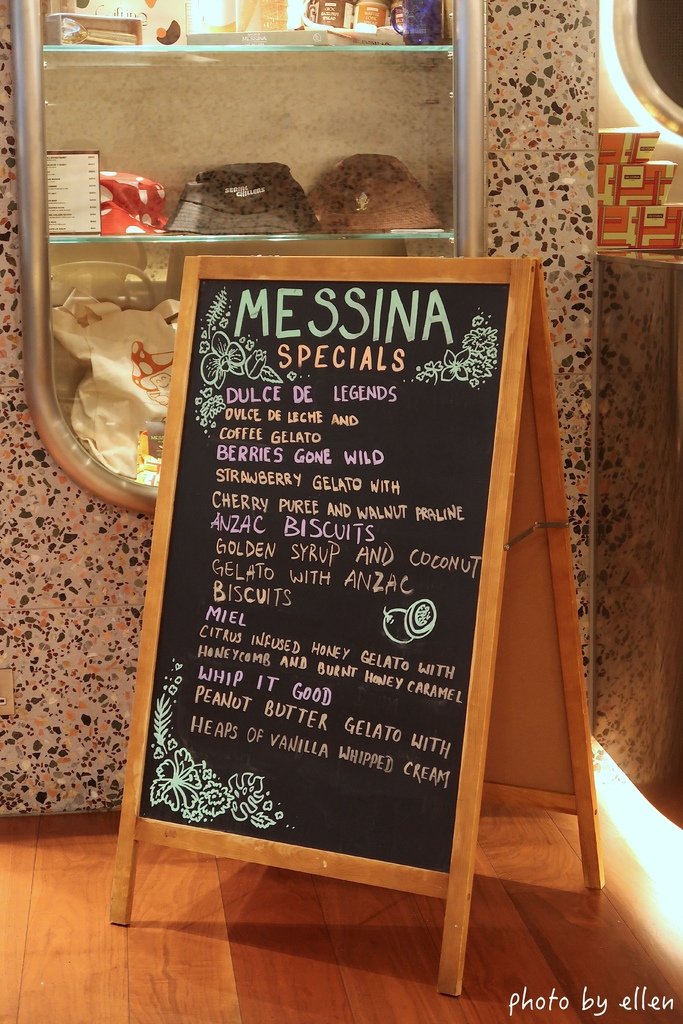 MESSINA
SERIAL
CHILLERS
MESSINA
SPECIALS
DULCE DE LEGENDS
DULCE DE LECHE AND
COFFEE GELATO
BERRIES GONE WILD
STRAWBERRY GELATO WITH
CHERRY PUREE AND WALNUT PRALINE
ANZAC BISCUITS
GOLDEN SYRUP AND COCONUT
GELATO WITH ANZAC
BISCUITS
MIEL
CITRUS INFUSED HONEY GELATO WITH
HONEYCOMB AND BURNT HONEY CARAMEL
WHIP IT GOOD
PEANUT BUTTER GELATO WITH
HEAPS OF VANILLA WHIPPED CREAM
photo by ellen